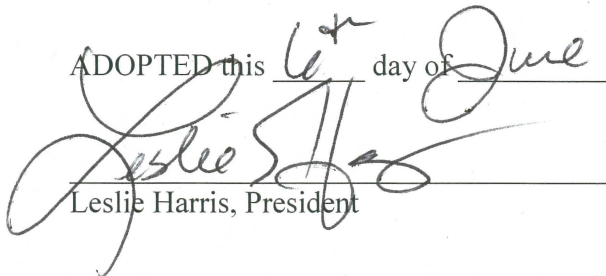 ADOPTED this 6th day of June
Leslie S Har
Leslie Harris, President